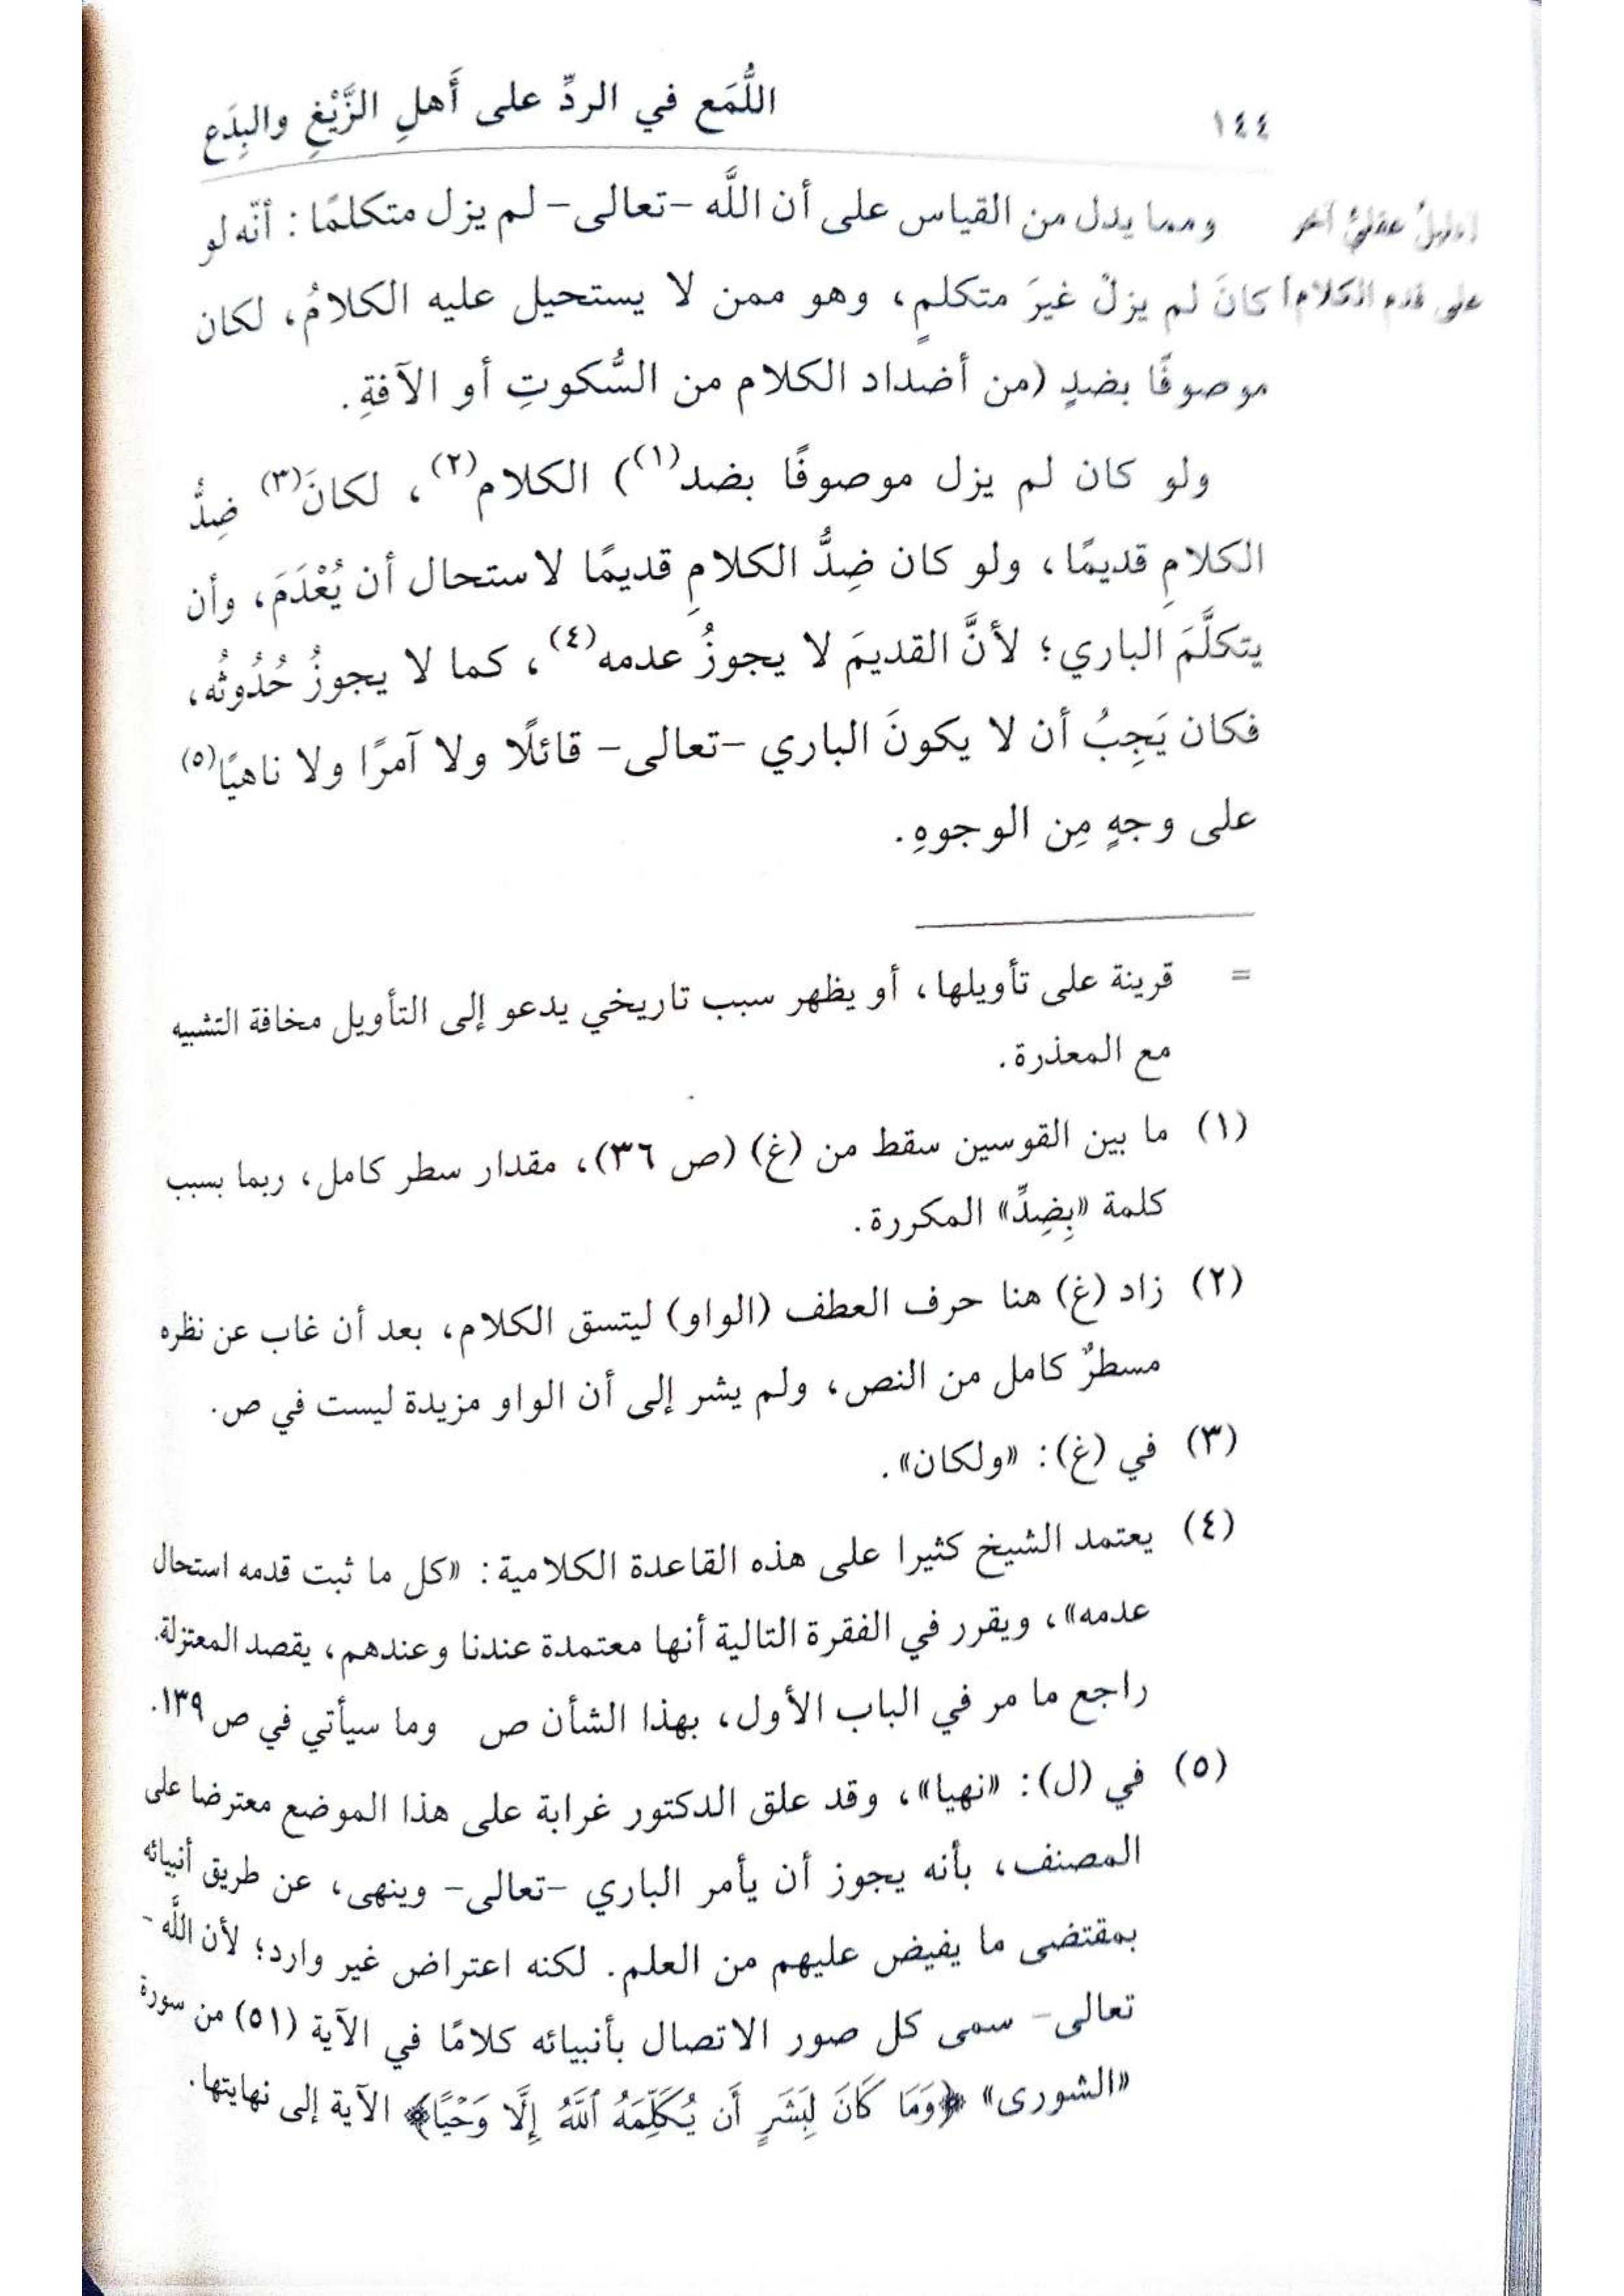 ١٤٤ اللُّمَع في الردِّ على أَهلِ الزَّيْغِ والبِدَع
[دليلٌ عقليٌّ آخر
على قدم الكلام]
ومما يدل من القياس على أن اللَّه -تعالى- لم يزل متكلمًا: أنّه لو
كانَ لم يزلْ غيرَ متكلمٍ، وهو ممن لا يستحيل عليه الكلامُ، لكان
موصوفًا بضدٍ (من أضداد الكلام من السُّكوتِ أو الآفةِ.
ولو كان لم يزل موصوفًا بضد(١)) الكلام(٢)، لكانَ(٣) ضِدُّ
الكلامِ قديمًا، ولو كان ضِدُّ الكلامِ قديمًا لاستحال أن يُعْدَمَ، وأن
يتكلَّمَ الباري؛ لأنَّ القديمَ لا يجوزُ عدمه(٤)، كما لا يجوزُ حُدُوثُه،
فكان يَجِبُ أن لا يكونَ الباري -تعالى- قائلًا ولا آمرًا ولا ناهيًا(٥)
على وجهٍ مِن الوجوهِ.
= قرينة على تأويلها، أو يظهر سبب تاريخي يدعو إلى التأويل مخافة التشبيه
مع المعذرة.
(١) ما بين القوسين سقط من (غ) (ص ٣٦)، مقدار سطر كامل، ربما بسبب
كلمة «بِضِدِّ» المكررة.
(٢) زاد (غ) هنا حرف العطف (الواو) ليتسق الكلام، بعد أن غاب عن نظره
مسطرٌ كامل من النص، ولم يشر إلى أن الواو مزيدة ليست في ص.
(٣) في (غ): «ولكان».
(٤) يعتمد الشيخ كثيرا على هذه القاعدة الكلامية: «كل ما ثبت قدمه استحال
عدمه»، ويقرر في الفقرة التالية أنها معتمدة عندنا وعندهم، يقصد المعتزلة.
راجع ما مر في الباب الأول، بهذا الشأن ص وما سيأتي في ص ١٣٩.
(٥) في (ل): «نهيا»، وقد علق الدكتور غرابة على هذا الموضع معترضا على
المصنف، بأنه يجوز أن يأمر الباري -تعالى- وينهى، عن طريق أنبيائه
بمقتضى ما يفيض عليهم من العلم. لكنه اعتراض غير وارد؛ لأن اللَّه -
تعالى- سمى كل صور الاتصال بأنبيائه كلامًا في الآية (٥١) من سورة
«الشورى» ﴿وَمَا كَانَ لِبَشَرٍ أَن يُكَلِّمَهُ ٱللَّهُ إِلَّا وَحْيًا﴾ الآية إلى نهايتها.